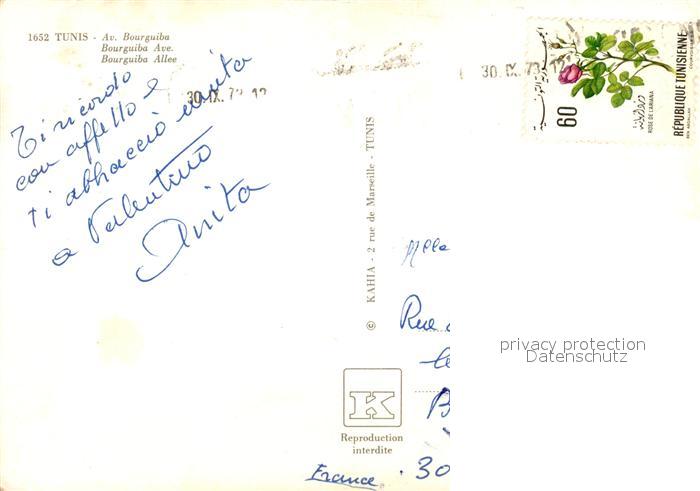 1652 TUNIS - Av. Bourguiba
Bourguiba Ave.
Bourguiba Allee
Ti ricordo
con affetto e
ti abbraccio unita
a Valentino
Anita
30.IX.7
30.IX.7
60
ROSE DE L'ARIANA
RÉPUBLIQUE TUNISIENNE
© KAHIA - 2 rue de Marseille - TUNIS
Mlle
Rue
privacy protection
Datenschutz
K
Reproduction
interdite
France. 30